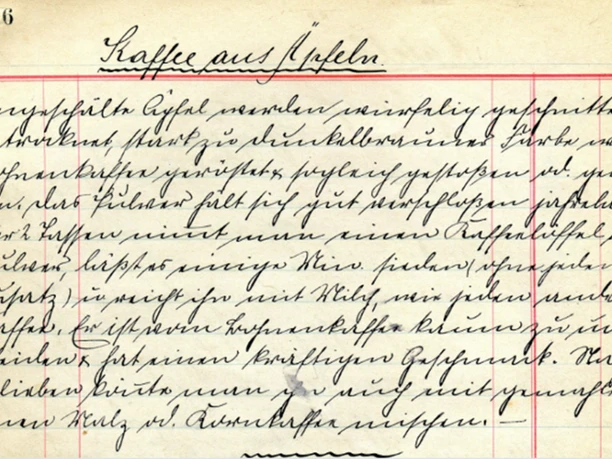 6
Kaffee aus Äpfeln.
ngeschälte Äpfel werden würfelig geschnitte
trocknet, stark zu dunkelbrauner Farbe w
ohnenkaffee geröstet & sogleich gestoßen od. ge
n. Das Pulver hält sich gut verschloßen jahrela
r 2 Tassen nimt man einen Kaffeelöffel
ulver, läßt es einige Min. sieden (ohne jeden
usatz) u reicht ihn mit Milch, wie jeden and
affee. Er ist vom Bohnenkaffee kaum zu u
eiden & hat einen kräftigen Geschmack. Na
lieben könte man ihn auch mit gemahl
nen Malz od. Kornkaffee mischen. —